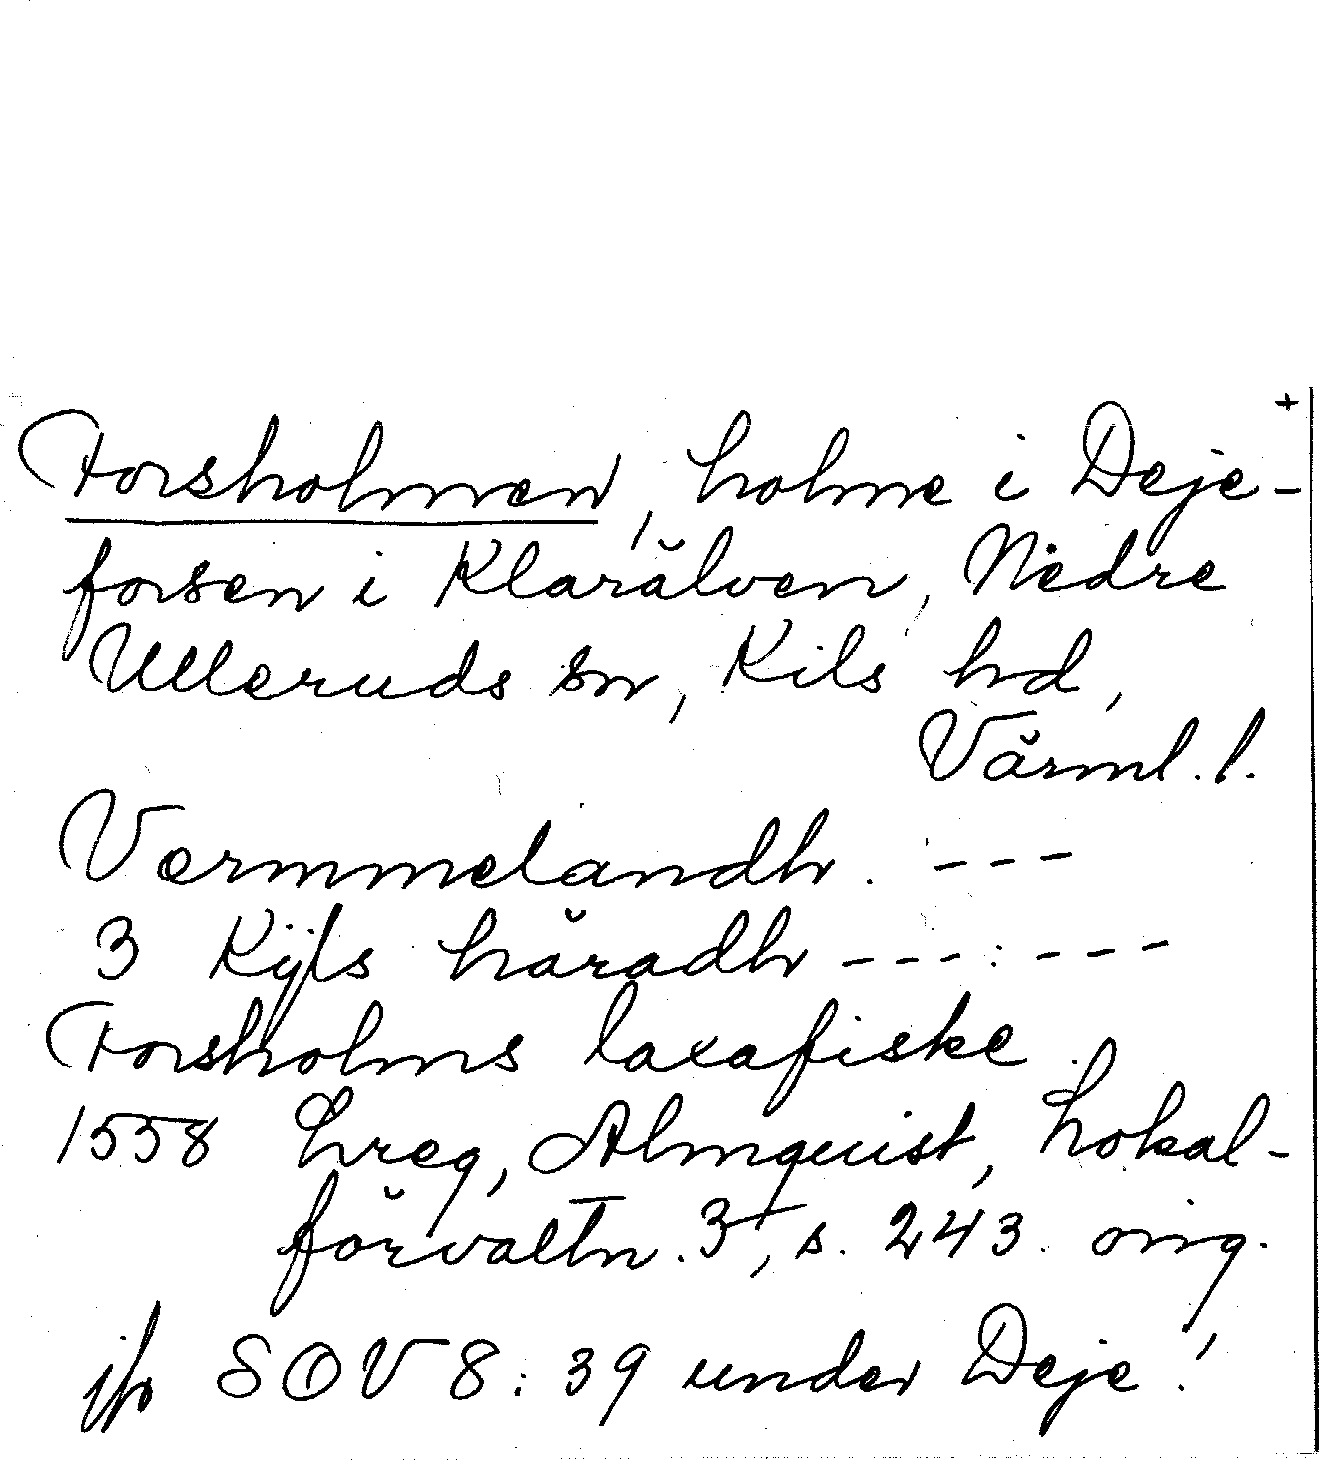 +
Forsholmen, holme i Deje-
forsen i Klarälven, Nedre
Ulleruds sn, Kils hd,
Värml. l.
Vermmelandh. ---
3 Kÿls häradh ---:---
Forsholms laxafiske.
1558 hreg, Almquist, Lokal-
förvaltn. 3, s. 243. orig.
jfr SOV 8: 39 under Deje!